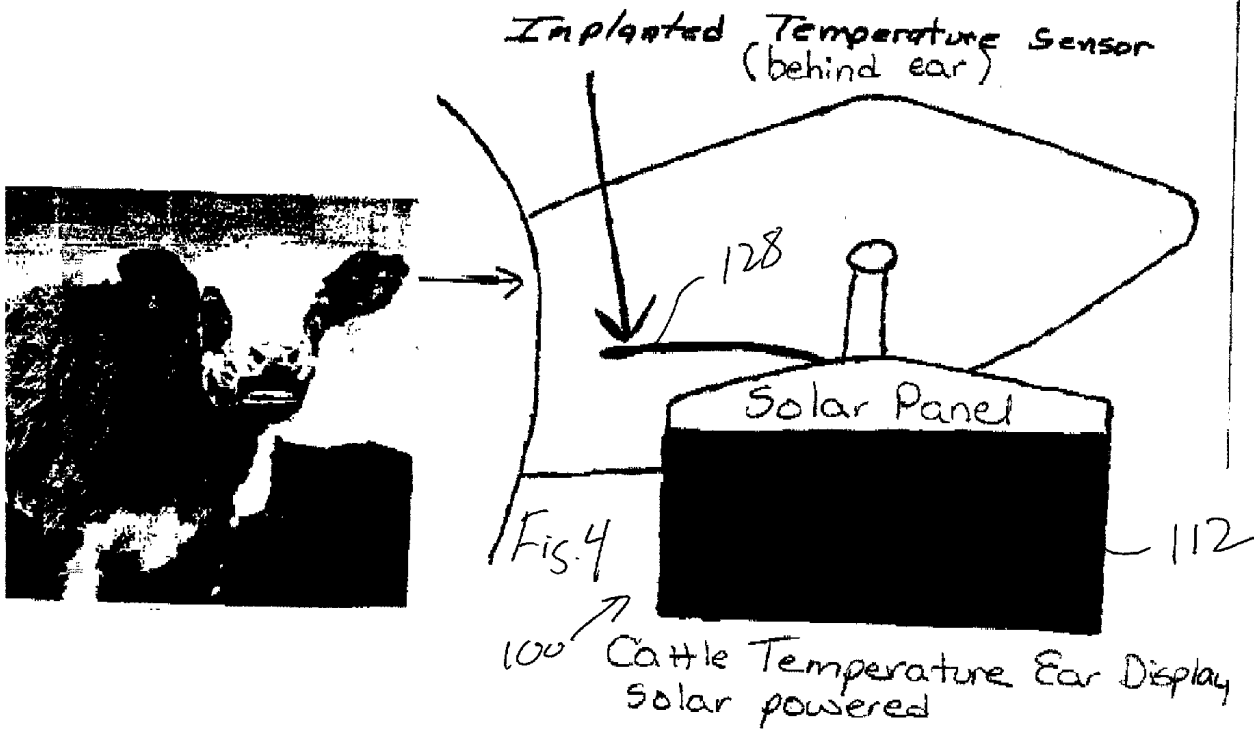 Implanted Temperature Sensor
(behind ear)
128
Solar Panel
Fig.4
112
100 Cattle Temperature Ear Display
Solar powered